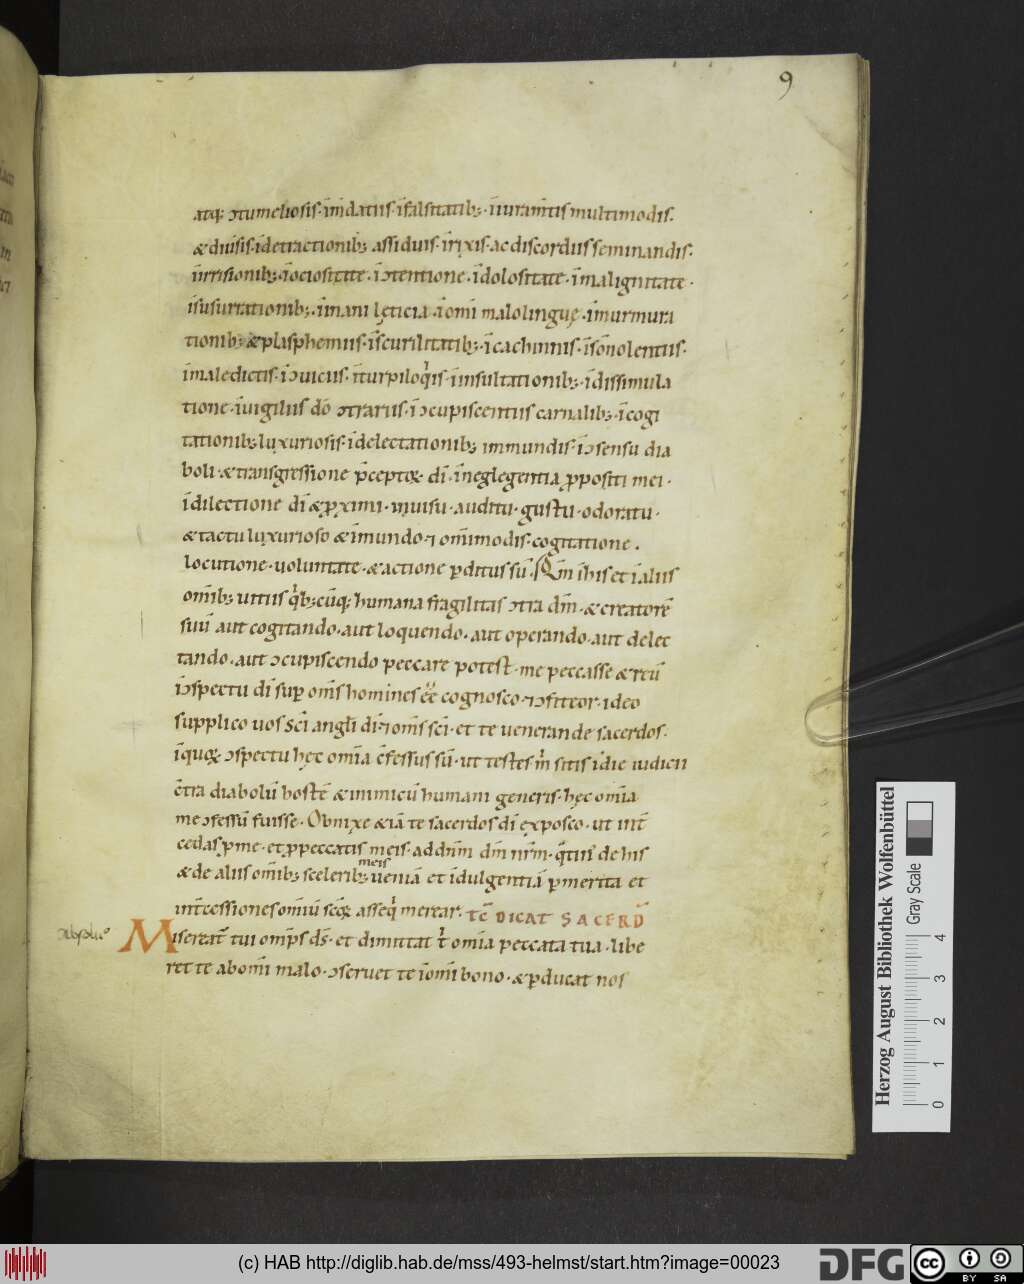 9
atq; ↄtumeliosis· īm̄datiis· īfalsitatib;· īiuram̄tis multimodis.
&diuīsis· īdetractionib; assiduis· īrixis· ac discordiis seminandis·
īirrisionib;· īociositate· īↄtentione· īdolositate· īmalignitate·
īsusurrationib;· īinani lęticia· īomī malo linguę· īmurmura
tionib; &plasphemiis· īscurilitatib;· īcachinnis· īsōnolentiis·
īmaledictis· īↄuiciis· īturpiloqͥis· īinsultationib;· īdissimula
tione· īuigiliis dō ↄtrariis· īↄcupiscentiis carnalib;· īcogi
tationib; luxuriosis· īdelectationib; immundis· īↄsensu dia
boli· &transgressione p̄ceptoꝝ dī· īneglegentia ꝓpositi mei·
īdilectione dī &ꝓximi· inuisu· auditu· gustu· odoratu·
&tactu luxurioso &īmundo· ⁊ om̄imodis· cogitatione.
locutione· uoluntate· &actione ꝑditus sū· Qm̄ īhis et īaliis
om̄ib; uitiis qͥb;cūq; humana fragilitas ↄtra dm̄· &creatorē
suū aut cogitando· aut loquendo· aut operando· aut delec
tando· aut ↄcupiscendo peccare potest· me peccasse &reū
īↄspectu dī suꝑ om̄s homines eē cognosco· ⁊ↄfiteor· ideo
supplico uos sc̄i angl̄i dī· ⁊om̄s sc̄i· et te uenerande sacerdos·
īquoꝝ ↄspectu hęc om̄ia c̄fessus sū· ut testes m̄ sitis īdie iudicii
c̄tra diabolū hostē &inimicū humani generis· hęc om̄ia
me ↄfessū fuisse· Obnixe &iā te sacerdos dī exposco· ut int̄
cedas ꝓme· et ꝓpeccatis meis· ad dn̄m dm̄ nr̄m· q̄tin' de his
meis
&de aliis om̄ib; scelerib; ueniā et īdulgentiā ꝑmerita et
int̄cessiones om̄iū sc̄oꝝ asseqͥ merear· TC̄ DICAT SACERD̄
Misereat̄ tui omp̄s ds̄· et dimittat t̄ om̄ia peccata tua· libe
ret te abomī malo· ↄseruet te īomī bono· &ꝑducat nos
Herzog August Bibliothek Wolfenbüttel
Gray Scale
0 1 2 3 4
(c) HAB http://diglib.hab.de/mss/493-helmst/start.htm?image=00023
DFG
cc BY SA